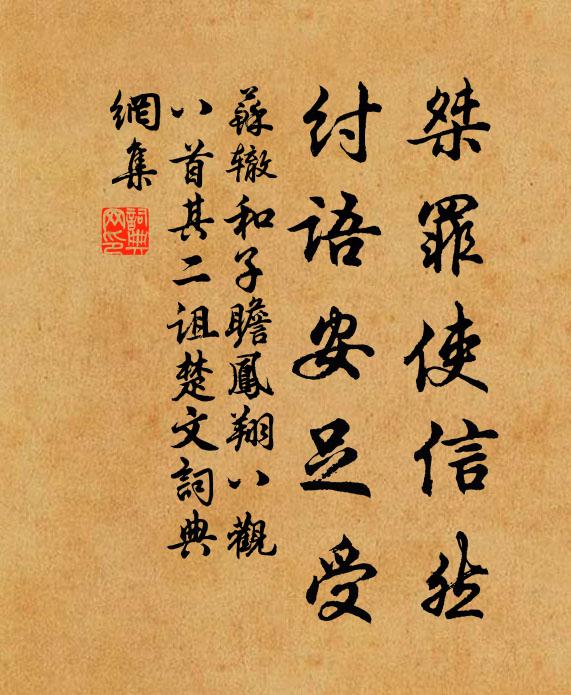 桀罪使信然
紂語安足受
蘇轍和子瞻鳳翔八觀
八首其二詛楚文詞典
網集
詞典
网印